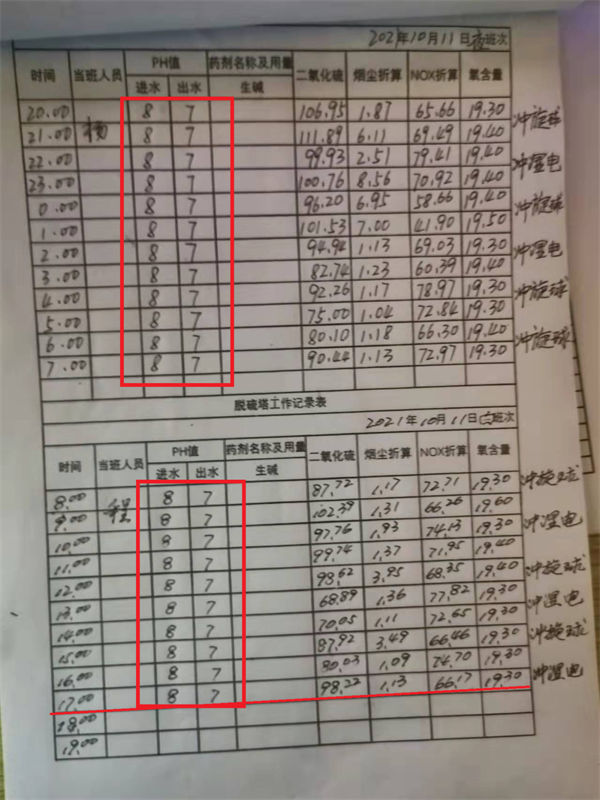 2021年10月11日夜班次
时间 当班人员 PH值 药剂名称及用量 二氧化硫 烟尘折算 NOX折算 氧含量
进水 出水 生碱
20.00 杨 8 7 106.95 1.87 65.66 19.30 冲旋球
21.00 8 7 111.89 6.11 69.49 19.40
22.00 8 7 99.93 2.51 79.41 19.40 冲湿电
23.00 8 7 100.76 8.56 70.92 19.40
0.00 8 7 96.20 6.95 58.66 19.40 冲旋球
1.00 8 7 101.53 7.00 41.90 19.50
2.00 8 7 94.94 1.13 69.03 19.30 冲湿电
3.00 8 7 82.74 1.23 60.39 19.40
4.00 8 7 92.26 1.17 78.97 19.30 冲旋球
5.00 8 7 75.00 1.04 72.84 19.30
6.00 8 7 80.10 1.18 66.30 19.40 冲旋球
7.00 8 7 90.44 1.13 72.97 19.30
脱硫塔工作记录表
2021年10月11日白班次
时间 当班人员 PH值 药剂名称及用量 二氧化硫 烟尘折算 NOX折算 氧含量
进水 出水 生碱
8.00 程 8 7 87.72 1.17 72.71 19.30 冲旋球
9.00 8 7 102.39 1.31 66.26 19.60
10.00 8 7 97.76 1.93 74.13 19.30 冲湿电
11.00 8 7 99.74 1.37 71.95 19.40
12.00 8 7 98.62 3.95 68.35 19.40 冲旋球
13.00 8 7 68.89 1.36 77.82 19.30 冲湿电
14.00 8 7 70.05 1.11 72.65 19.30
15.00 8 7 87.92 3.49 66.46 19.30 冲旋球
16.00 8 7 80.03 1.09 74.70 19.30
17.00 8 7 98.22 1.13 66.17 19.30 冲湿电
18.00
19.00